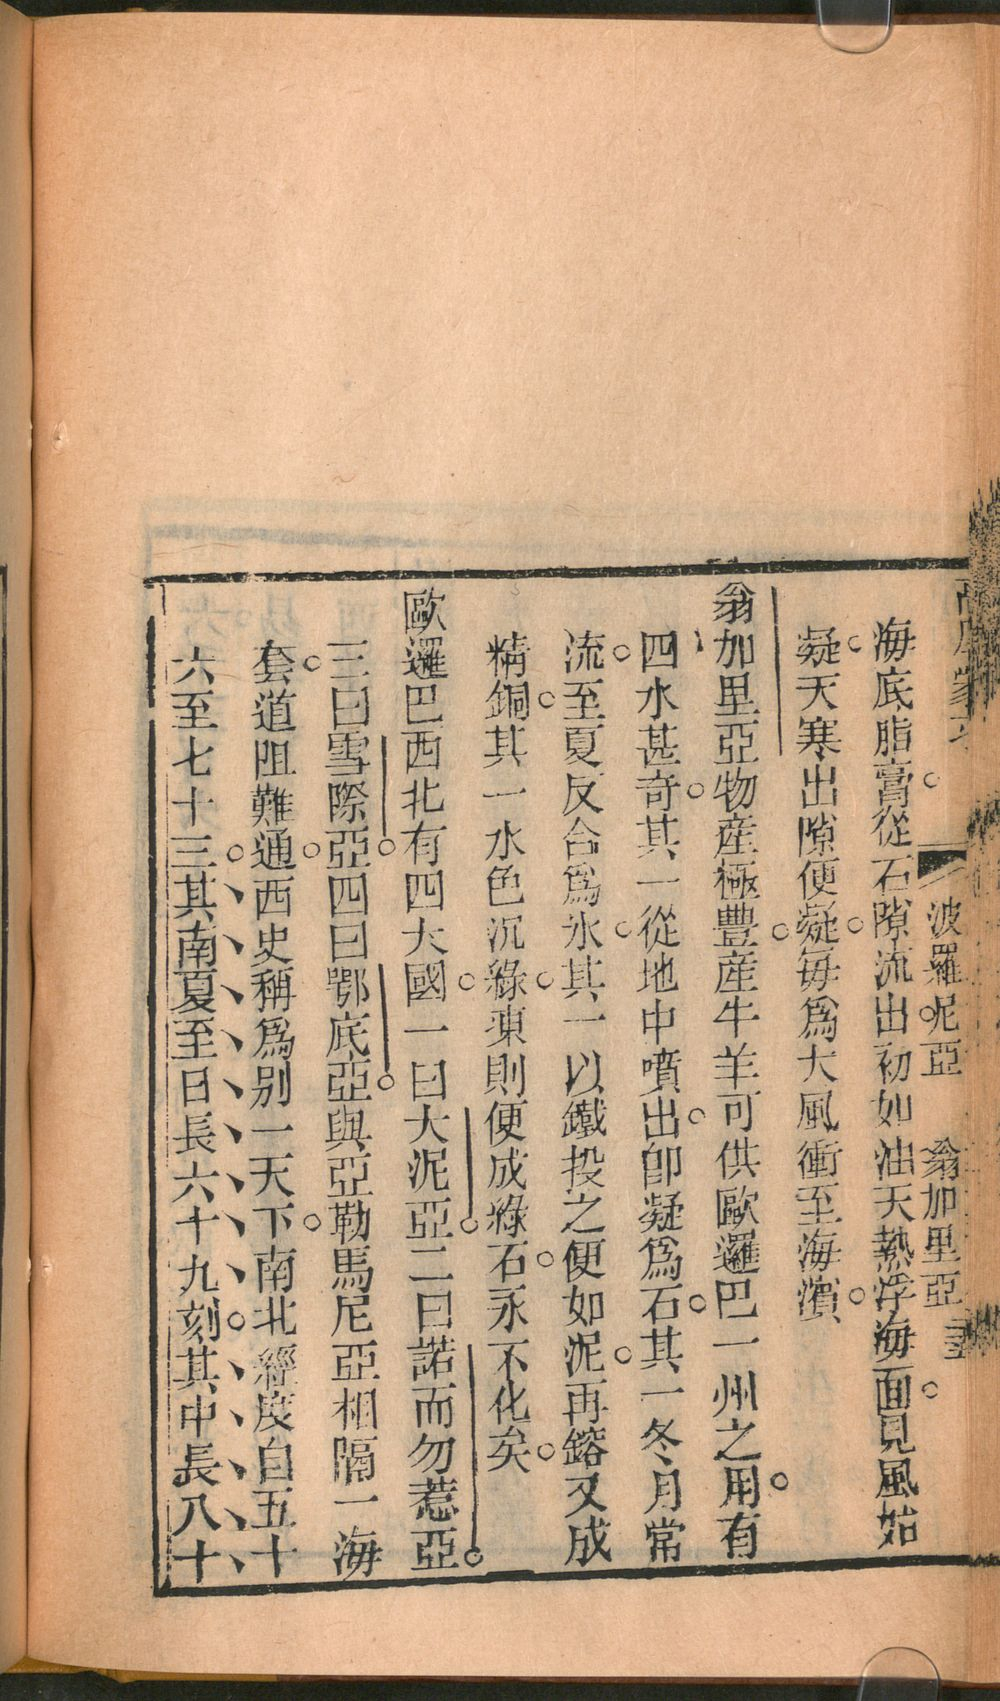 波羅泥亞　翁加里亞
海底脂膏從石隙流出初如油天熱浮海面見風始
凝天寒出隙便凝每爲大風衝至海濱
翁加里亞物產極豐產牛羊可供歐邏巴一州之用有
四水甚奇其一從地中噴出卽凝爲石其一冬月常
流至夏反合爲氷其一以鐵投之便如泥再鎔又成
精銅其一水色沉綠凍則便成綠石永不化矣
歐邏巴西北有四大國一曰大泥亞二曰諾而勿惹亞
三曰雪際亞四曰鄂底亞與亞勒馬尼亞相隔一海
套道阻難通西史稱爲別一天下南北經度自五十
六至七十三其南夏至日長六十九刻其中長八十